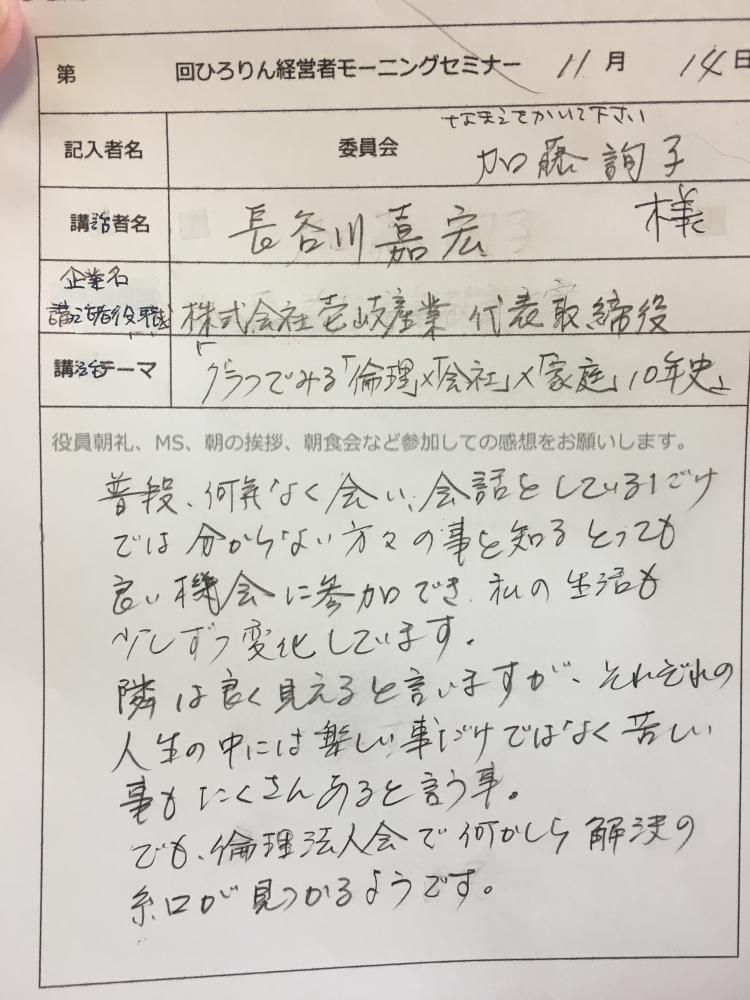 第 回ひろりん経営者モーニングセミナー 11月 14日
なまえをかいて下さい
記入者名 委員会 加藤詢子
講話者名 長谷川嘉宏 様
企業名
講話者役職 株式会社壱岐産業 代表取締役
講話テーマ 「グラフでみる「倫理」×「会社」×「家庭」10年史」
役員朝礼、MS、朝の挨拶、朝食会など参加しての感想をお願いします。
普段、何気なく会い、会話をしているだけ
では分からない方々の事を知るとっても
良い機会に参加でき、私の生活も
少しずつ変化しています。
隣は良く見えると言いますが、それぞれの
人生の中には楽しい事だけではなく苦しい
事もたくさんあると言う事。
でも、倫理法人会で何かしら解決の
糸口が見つかるようです。